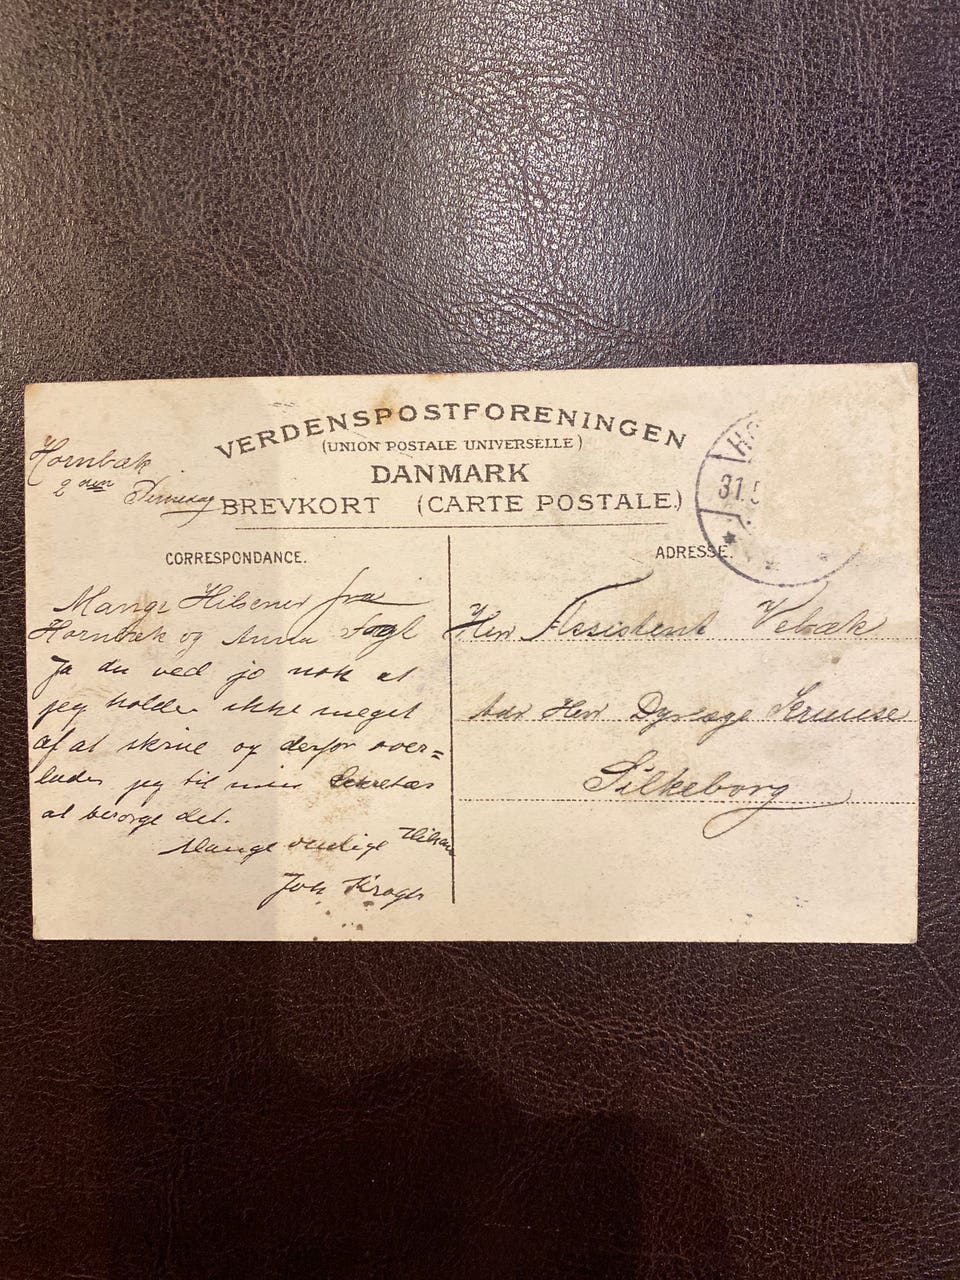 VERDENSPOSTFORENINGEN
(UNION POSTALE UNIVERSELLE)
DANMARK
BREVKORT (CARTE POSTALE.)
Hornbæk
2 den
CORRESPONDANCE.
Mange Hilsener fra
Hornbæk og Anna Fogt
Ja du ved jo nok at
jeg holder ikke meget
af at skrive og derfor over=
lader jeg til min Sekretær
at besørge det.
Mange venlige Hilsen
Joh Krager
ADRESSE.
31.5
Herr Assistent Vebæk
Adr Herr Dyrlæge Kruuse
Silkeborg